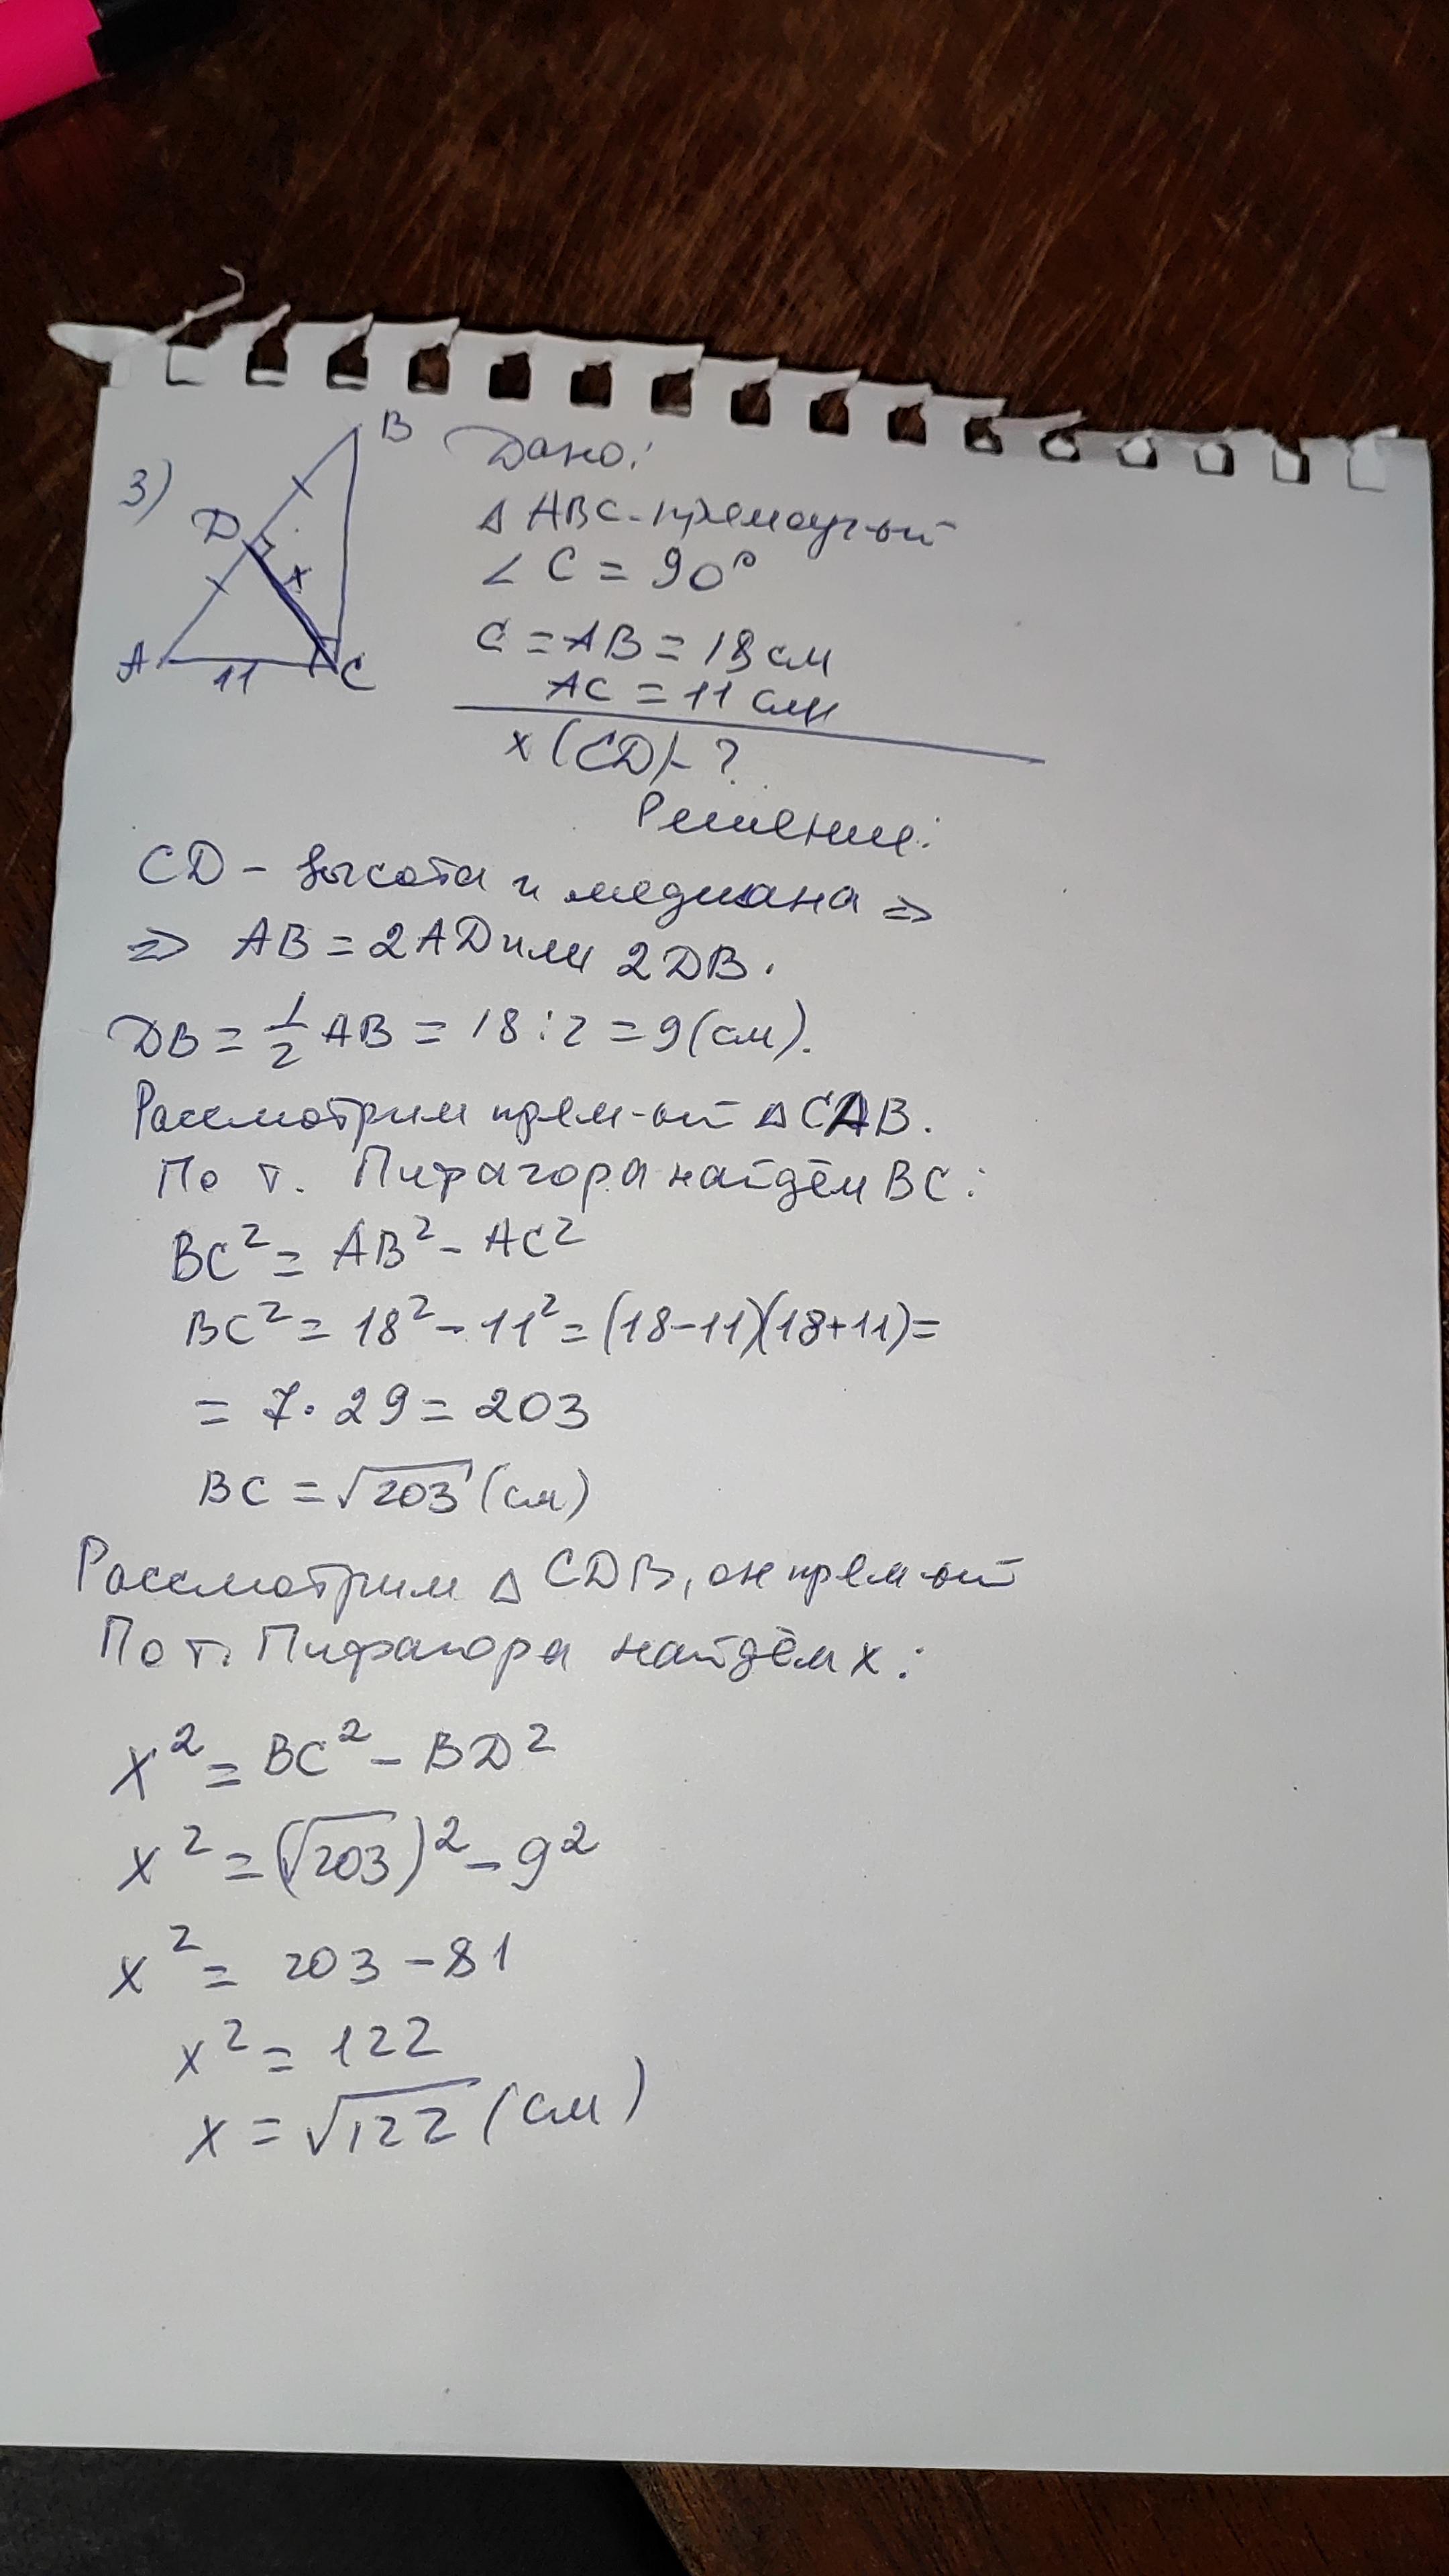 3)
B
D
x
A
11
C
Дано:
△ ABC - прямоуг-ый
∠ C = 90°
C = AB = 18 см
AC = 11 см
x (CD) - ?
Решение:
CD - высота и медиана ⇒
⇒ AB = 2AD или 2DB.
DB = 1/2 AB = 18 : 2 = 9 (см).
Рассмотрим прям-ый △ CAB.
По т. Пифагора найдём BC:
BC² = AB² - AC²
BC² = 18² - 11² = (18-11)(18+11) =
= 7 · 29 = 203
BC = √203 (см)
Рассмотрим △ CDB, он прям-ый
По т. Пифагора найдём x:
x² = BC² - BD²
x² = (√203)² - 9²
x² = 203 - 81
x² = 122
x = √122 (см)